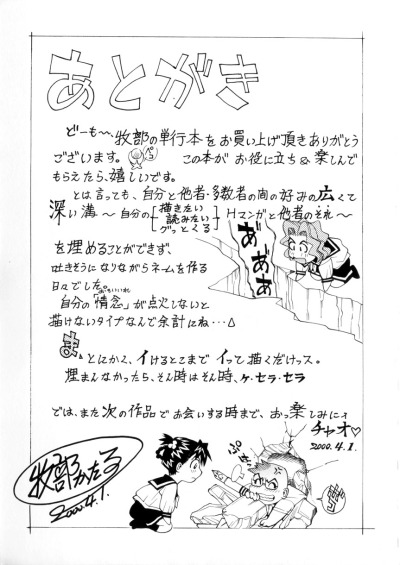 あとがき
どーも〜、牧部の単行本をお買い上げ頂きありがとう
ございます。ペコ この本が お役に立ち＆楽しんで
もらえたら、嬉しいです。
とは言っても、自分と他者・多数者の間の好みの広くて
深い溝〜自分の[描きたい 読みたい グっとくる]Hマンガと他者のそれ〜
を埋めることができず、
吐きそうになりながらネームを作る
日々でした。
自分の「情念」が点火しないと
描けないタイプなんで余計にね…△
ま、とにかく、イけるとこまで イって描くだけっス。
埋まんなかったら、そん時はそん時、ケ・セラ・セラ
では、また次の作品でお会いする時まで、お楽しみに
チャオ♡
2000.4.1.
あ゛あ゛あ゛
牧部かたる
2000.4.1.